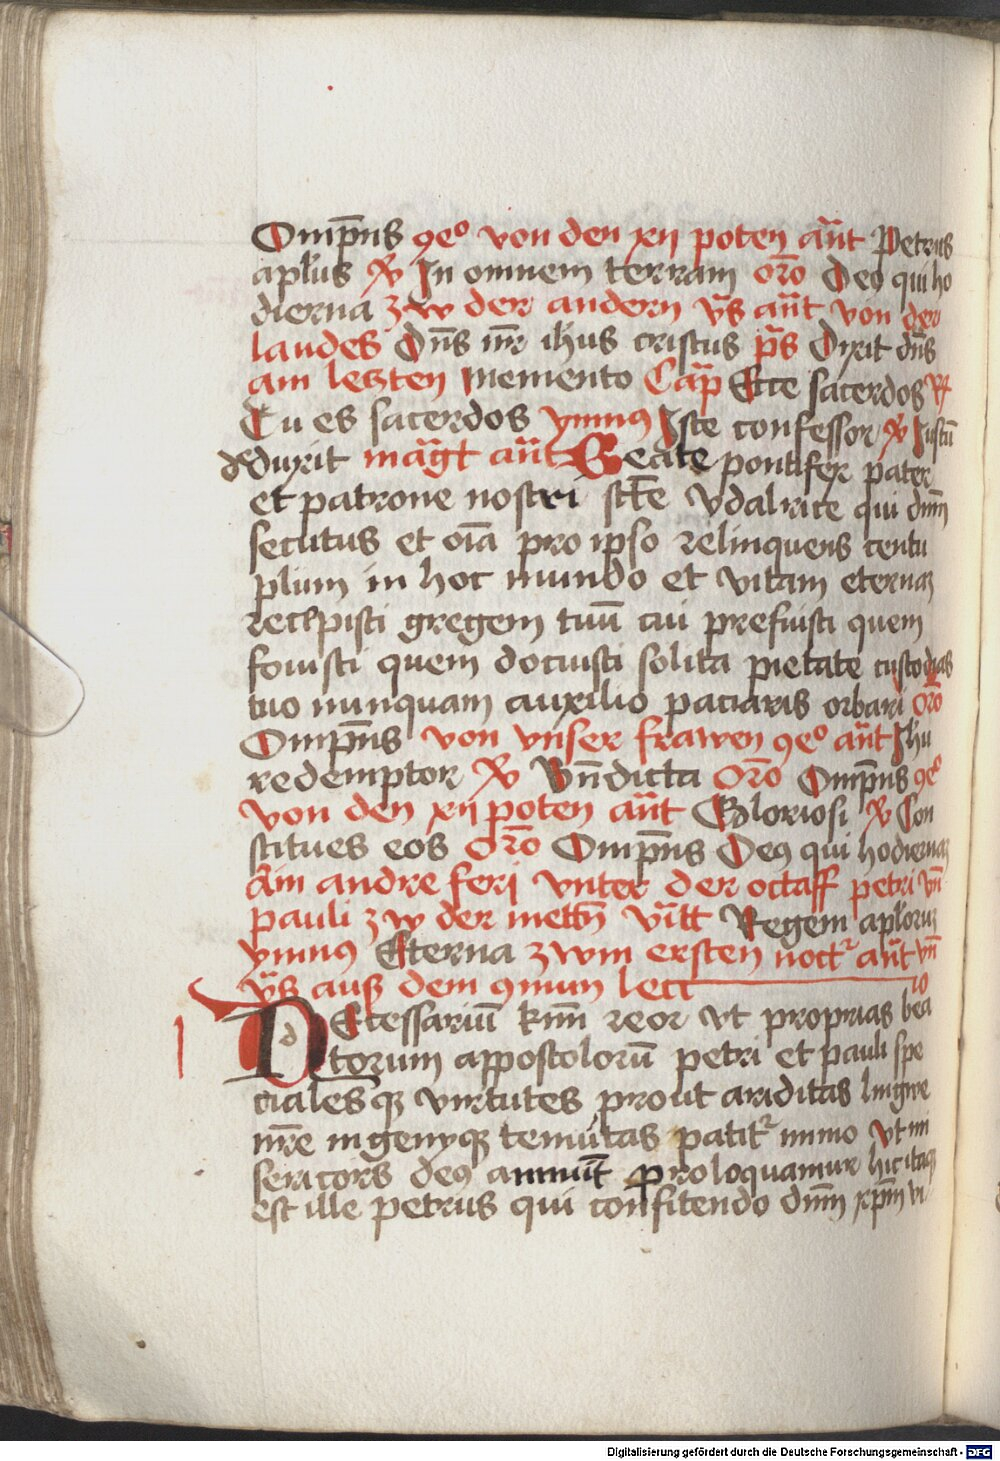 Omp̄ns ꝯeo von den xij poten an̄t Petrus
aplus ꝟ In omnem terram or̄o Deꝯ qui ho
dierna zw der andern v̄s an̄t von der
laudes Dn̄s nr̄ ihus cristus p̄s Dixit dn̄s
am letzten Memento Cap̄ Ecce sacerdos R
Tu es sacerdos ymnꝯ Iste confessor ꝟ Iustū
dduxit mag̃t an̄t Beate pontifex pater
et patrone noster sc̄te Vdalrice qui dn̄m
secutus et oīa pro ipso relinquens centu
plum in hoc mundo et vitam eternaz
recepisti gregem tuū cui prefuisti quem
fouisti quem docuisti solita pietate custodias
tuo nunquam auxilio paciaris orbari or̄o
Omp̄ns von vnser frawen ꝯeo an̄t Ihu
redemptor ꝟ Bn̄dicta Or̄o Omp̄ns ꝯeo
von den xij poten an̄t Gloriosi ꝟ Con
stitues eos Or̄o Omp̄ns Deꝯ qui hodiernaz
Am andre ferj vnter der octaff petri vn̄
pauli zw der mettn̄ vītt Regem aplorum
ymnꝯ Eterna zwm ersten noctᷣ an̄t vn̄
v̄s auß dem ꝯmun lecc̄ io
NEcessariū km̄ reor vt proprias bea
torum appostolorū petri et pauli spe
ciales qꝫ virtutes prout ariditas lingwe
nr̄e ingenyqꝫ temutas patitᷣ nimo vt mi
sericors deꝯ annuīt proloquamur hic itaqꝫ
est ille petrus qui confitendo dn̄m xp̄m vi
Digitalisierung gefördert durch die Deutsche Forschungsgemeinschaft - DFG